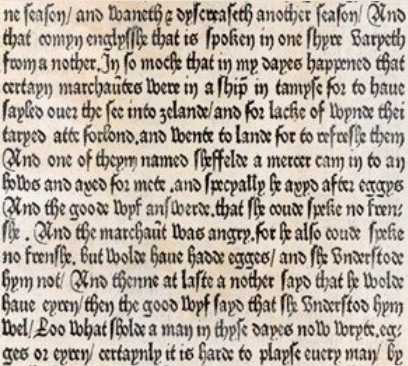 ne season/ and waneth & dyscreaseth another season/ And
that comyn englysshe that is spoken in one shyre varyeth
from a nother. In so moche that in my dayes happened that
certayn marchaūtes were in a ship̄ in tamyse for to haue
sayled ouer the see into zelande/ and for lacke of wynde thei
taryed atte forlond. and wente to lande for to refreshe them
And one of theym named sheffelde a mercer cam in to an
hows and axed for mete. and specyally he axyd after eggys
And the goode wyf answerde. that she coude speke no fren-
she. And the marchaūt was angry. for he also coude speke
no frenshe. but wolde haue hadde egges/ and she vnderstode
hym not/ And thenne at laste a nother sayd that he wolde
haue eyren/ then the good wyf sayd that she vnderstod hym
wel/ Loo what sholde a man in thyse dayes now wryte. eg-
ges or eyren/ certaynly it is harde to playse euery man/ by